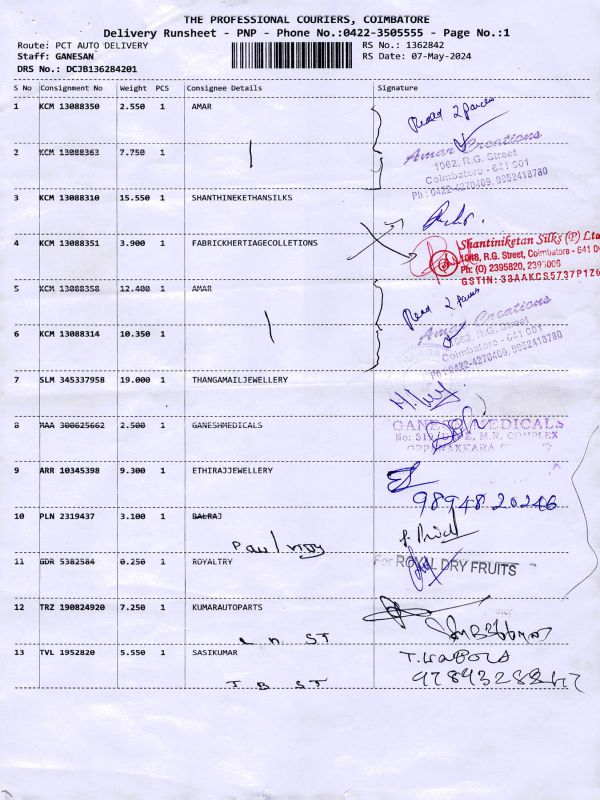 THE PROFESSIONAL COURIERS, COIMBATORE
Delivery Runsheet - PNP - Phone No.:0422-3505555 - Page No.:1
Route: PCT AUTO DELIVERY RS No.: 1362842
Staff: GANESAN RS Date: 07-May-2024
DRS No.: DCJB136284201
S No Consignment No Weight PCS Consignee Details Signature
1 KCM 13088350 2.550 1 AMAR
Read 2 paces
Amar Creations
2 KCM 13088363 7.750 1
1062, R.G. Street
Coimbatore - 641 001
Ph : 0422-4270409, 9952418780
3 KCM 13088310 15.550 1 SHANTHINEKETHANSILKS
4 KCM 13088351 3.900 1 FABRICKHERTIAGECOLLETIONS
Shantiniketan Silks (P) Ltd
1048, R.G. Street, Coimbatore - 641 0
Ph: (O) 2395820, 2395006
GSTIN: 33AAKCS5737P1Z6
5 KCM 13088358 12.400 1 AMAR
Read 2 paces
Amar Creations
6 KCM 13088314 10.350 1
1062, R.G. Street
Coimbatore - 641 001
Ph : 0422-4270409, 9952418780
7 SLM 345337958 19.000 1 THANGAMAILJEWELLERY
8 MAA 300625662 2.500 1 GANESHMEDICALS
GANESH MEDICALS
M.R. COMPLEX
9 ARR 10345398 9.300 1 ETHIRAJJEWELLERY
98948 20246
10 PLN 2319437 3.100 1 BALRAJ
Paul
11 GDR 5382584 0.250 1 ROYALTRY
For ROYAL DRY FRUITS
12 TRZ 190824920 7.250 1 KUMARAUTOPARTS
L n ST
13 TVL 1952820 5.550 1 SASIKUMAR
J B ST